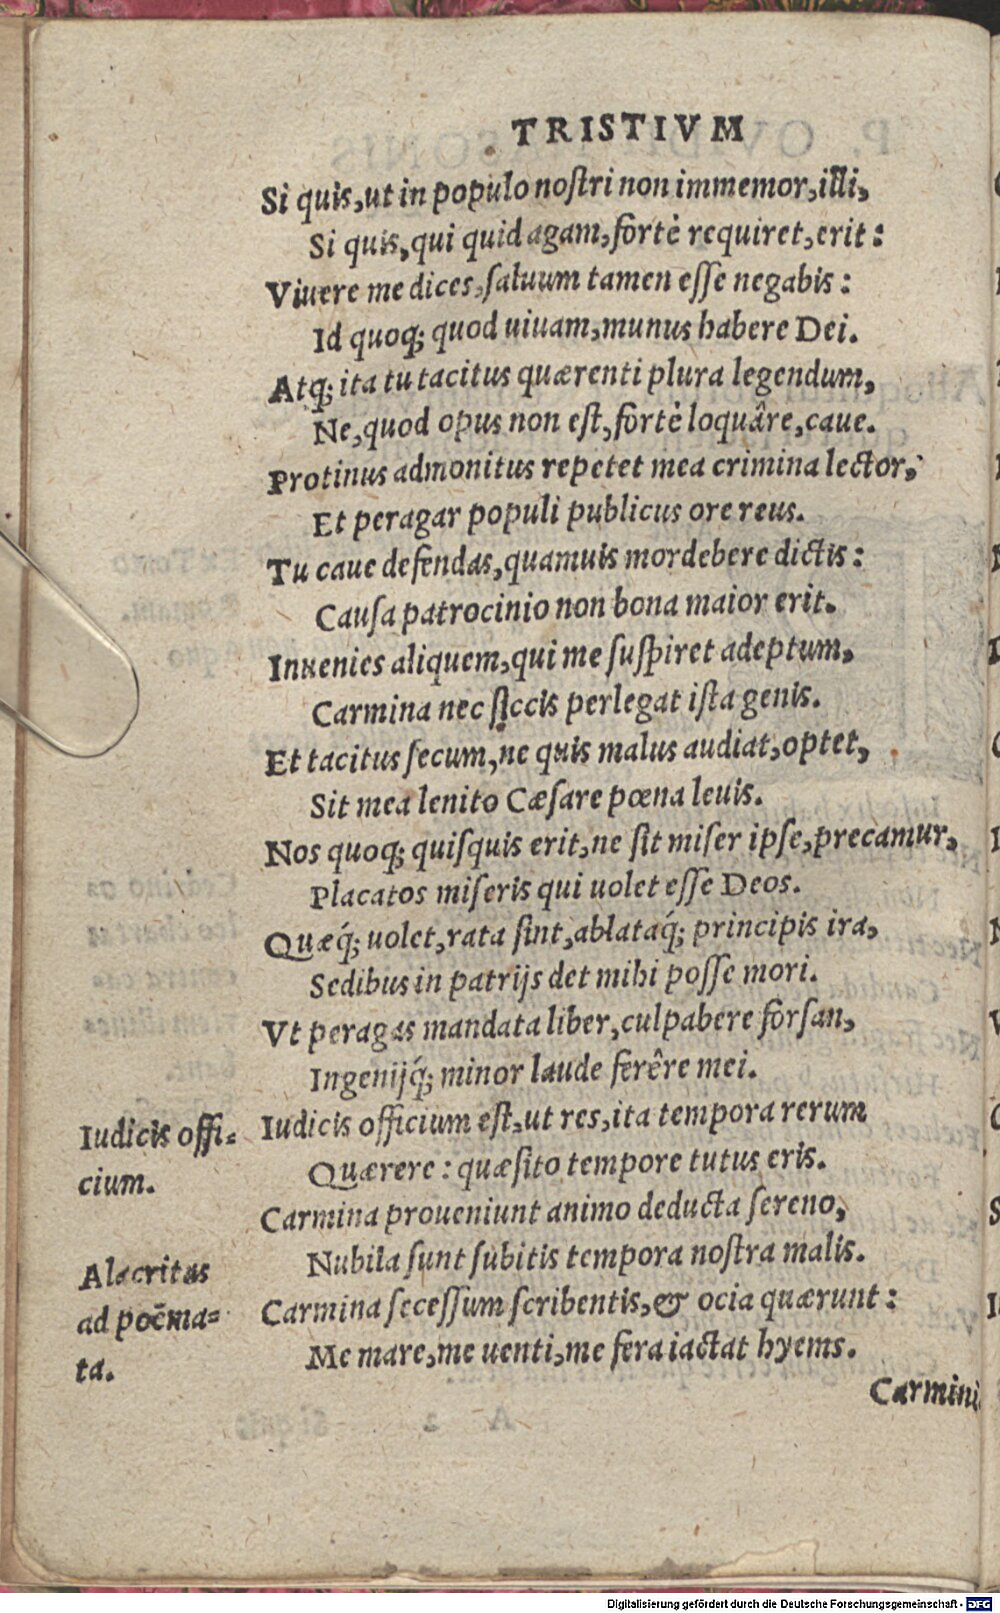 TRISTIVM
Si quis, ut in populo noſtri non immemor, illi,
Si quis, qui quid agam, fortè requiret, erit:
Viuere me dices, ſaluum tamen eſſe negabis:
Id quoq; quod uiuam, munus habere Dei.
Atq; ita tu tacitus quærenti plura legendum,
Ne, quod opus non eſt, fortè loquâre, caue.
Protinus admonitus repetet mea crimina lector,
Et peragar populi publicus ore reus.
Tu caue defendas, quamuis mordebere dictis:
Cauſa patrocinio non bona maior erit.
Inuenies aliquem, qui me ſuſpiret adeptum,
Carmina nec ſiccis perlegat iſta genis.
Et tacitus ſecum, ne quis malus audiat, optet,
Sit mea lenito Cæſare pœna leuis.
Nos quoq; quiſquis erit, ne ſit miſer ipſe, precamur,
Placatos miſeris qui uolet eſſe Deos.
Quæq́; uolet, rata ſint, ablataq́; principis ira,
Sedibus in patrijs det mihi poſſe mori.
Vt peragas mandata liber, culpabere forſan,
Ingenijq́; minor laude ferêre mei.
Iudicis offi-
cium.
Iudicis officium eſt, ut res, ita tempora rerum
Quærere: quæſito tempore tutus eris.
Carmina proueniunt animo deducta ſereno,
Nubila ſunt ſubitis tempora noſtra malis.
Alacritas
ad poëma-
ta.
Carmina ſeceſſum ſcribentis, & ocia quærunt:
Me mare, me uenti, me fera iactat hyems.
Carmini
Digitalisierung gefördert durch die Deutsche Forschungsgemeinschaft - DFG